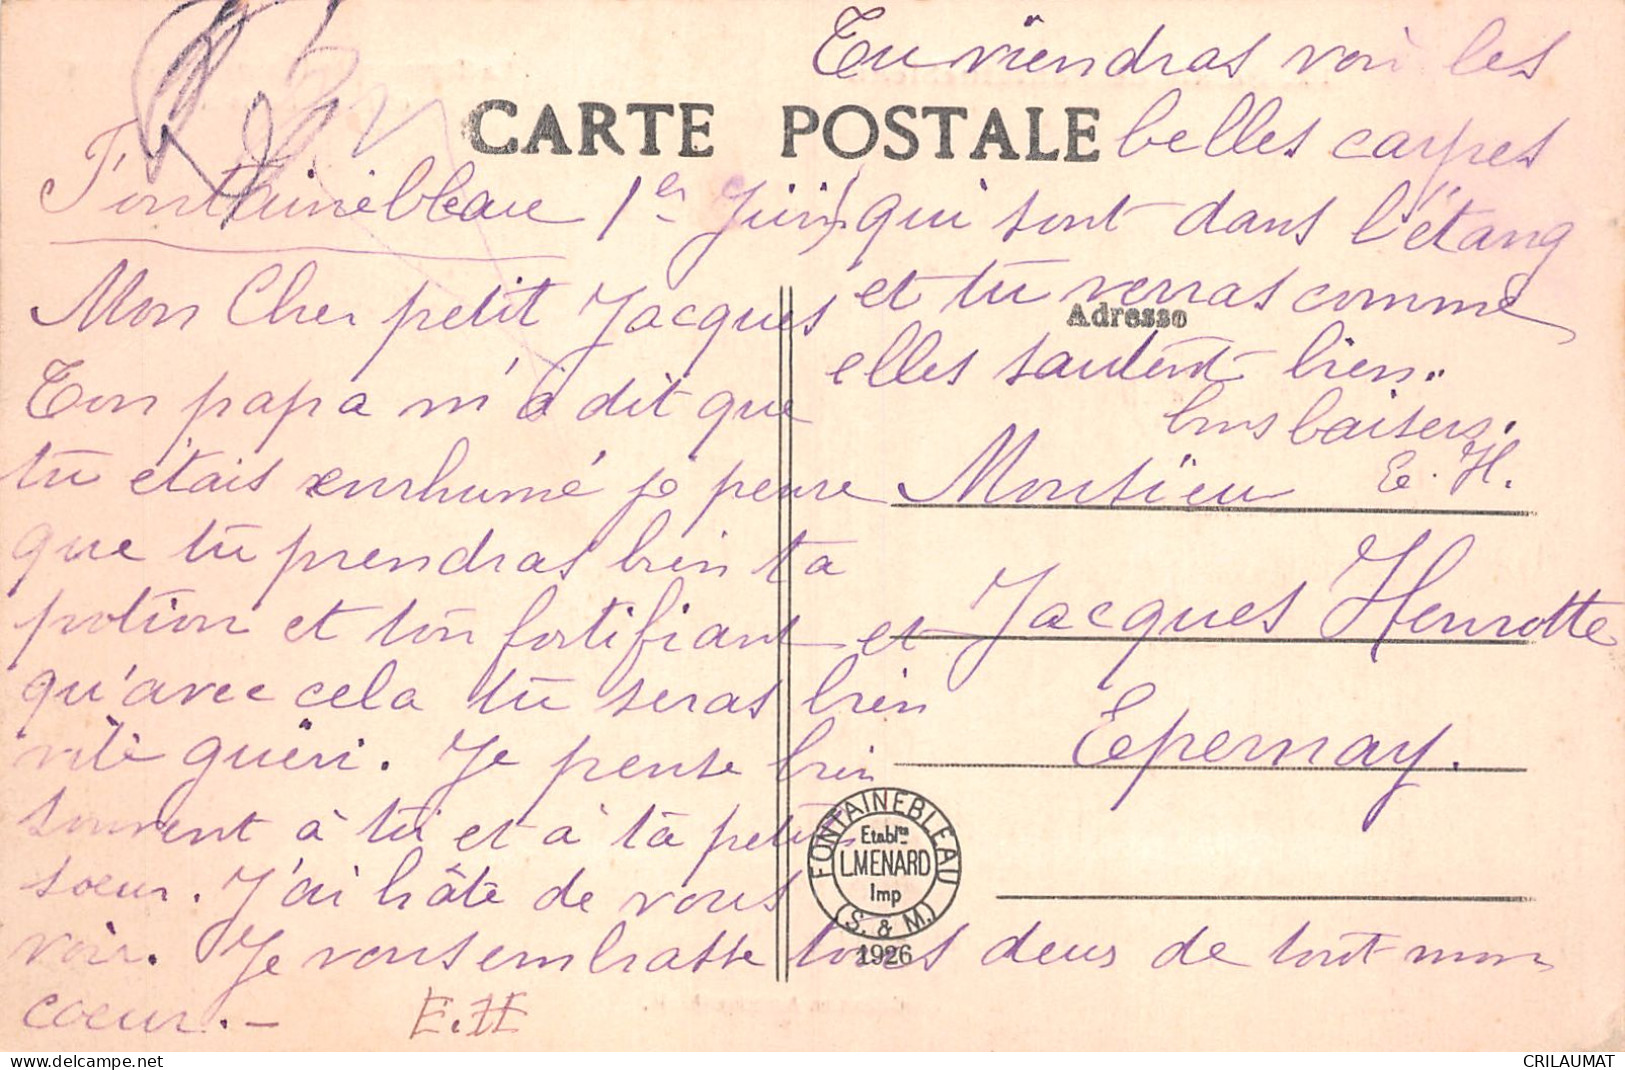 CARTE POSTALE
Fontainebleau 1er Juin
Mon Cher petit Jacques
Ton papa m'a dit que
tu étais enrhumé je pense
que tu prendras bien ta
potion et ton fortifiant et
qu'avec cela tu seras bien
vite guéri. Je pense bien
souvent à toi et à ta petite
soeur. J'ai hâte de vous
voir. Je vous embrasse tous deux de tout mon
coeur. —
E.H
Tu viendras voir les
belles carpes
qui sont dans l'étang
et tu verras comme
elles sautent bien..
bons baisers.
E. H.
Adresse
Monsieur
Jacques Henrotte
Epernay.
FONTAINEBLEAU
Etablts
L.MENARD
Imp
(S. & M.)
1926
delcampe.net
CRILAUMAT